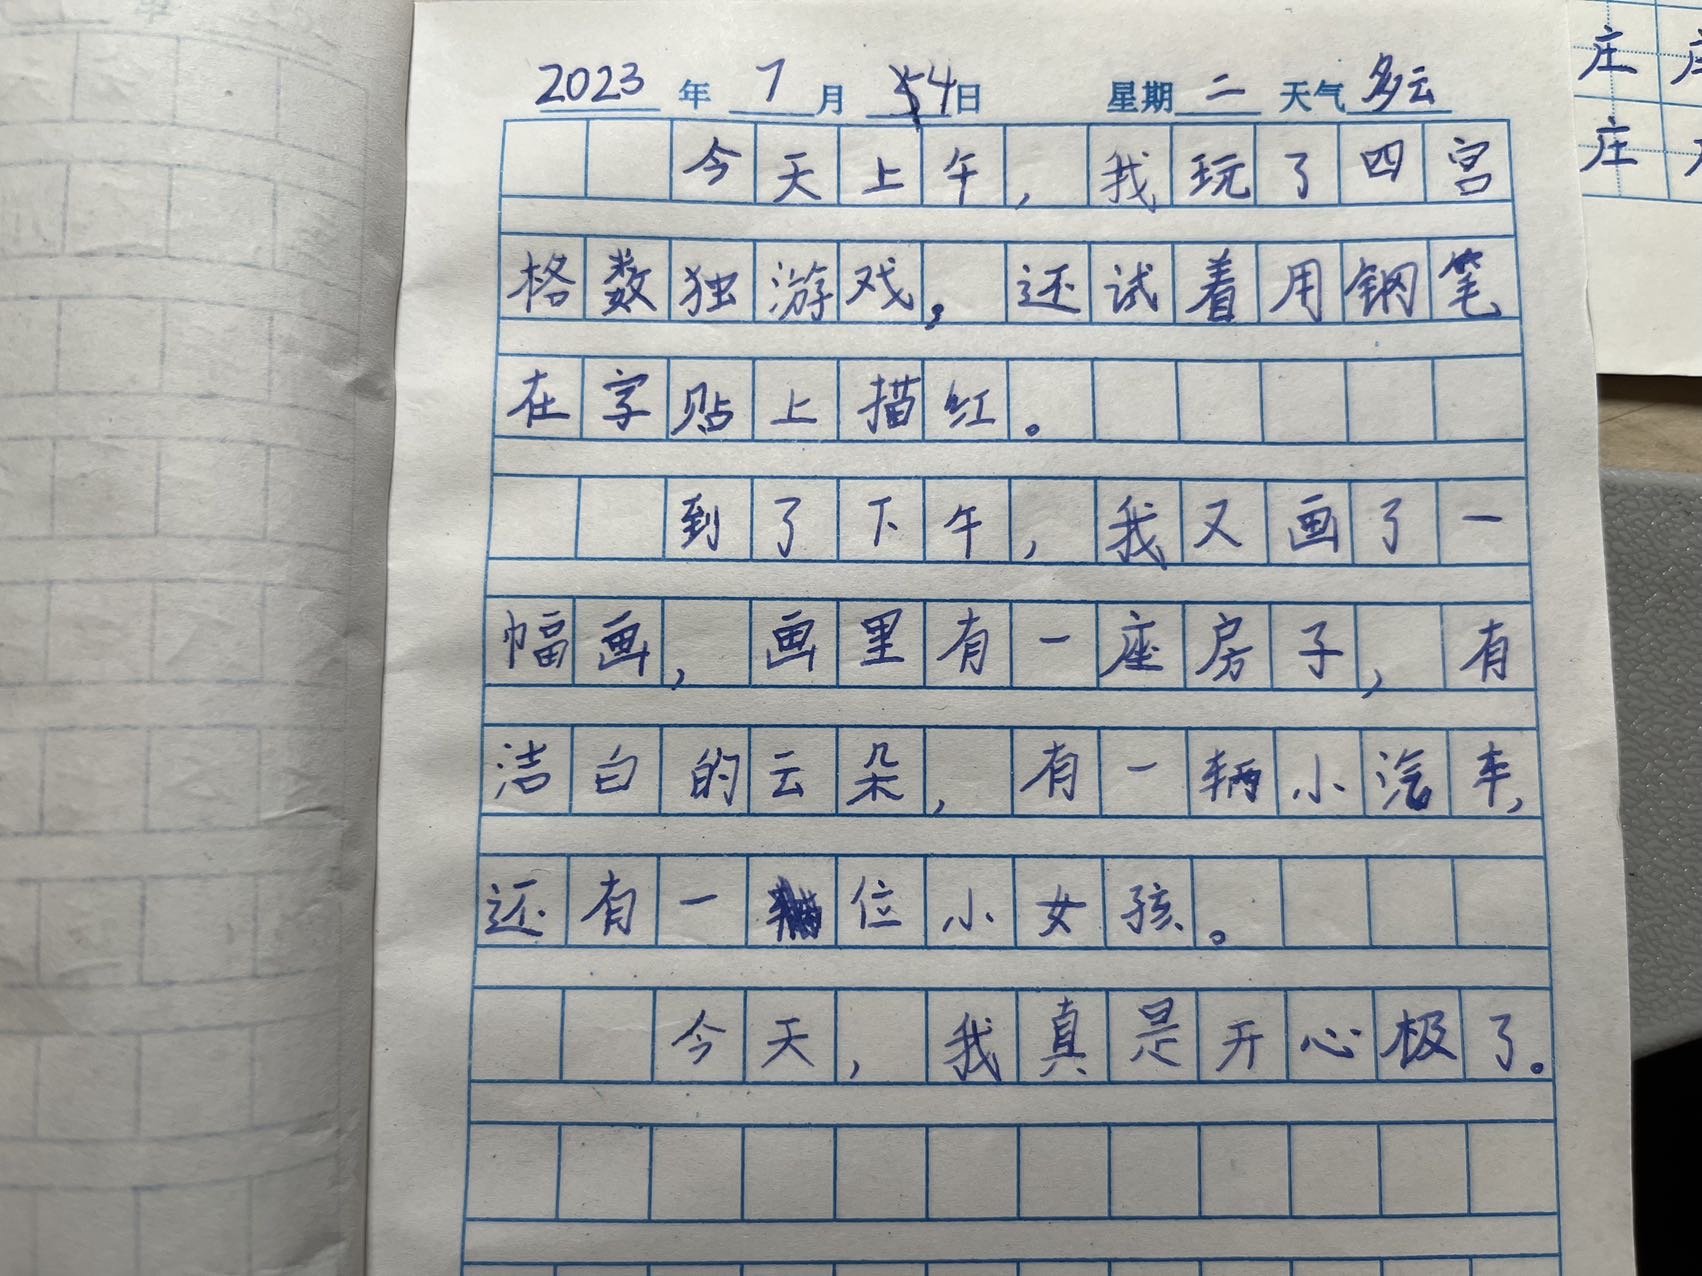 2023年7月4日 星期二 天气多云
今天上午，我玩了四宫
格数独游戏，还试着用钢笔
在字贴上描红。
到了下午，我又画了一
幅画，画里有一座房子，有
洁白的云朵，有一辆小汽车，
还有一位小女孩。
今天，我真是开心极了。
庄
庄